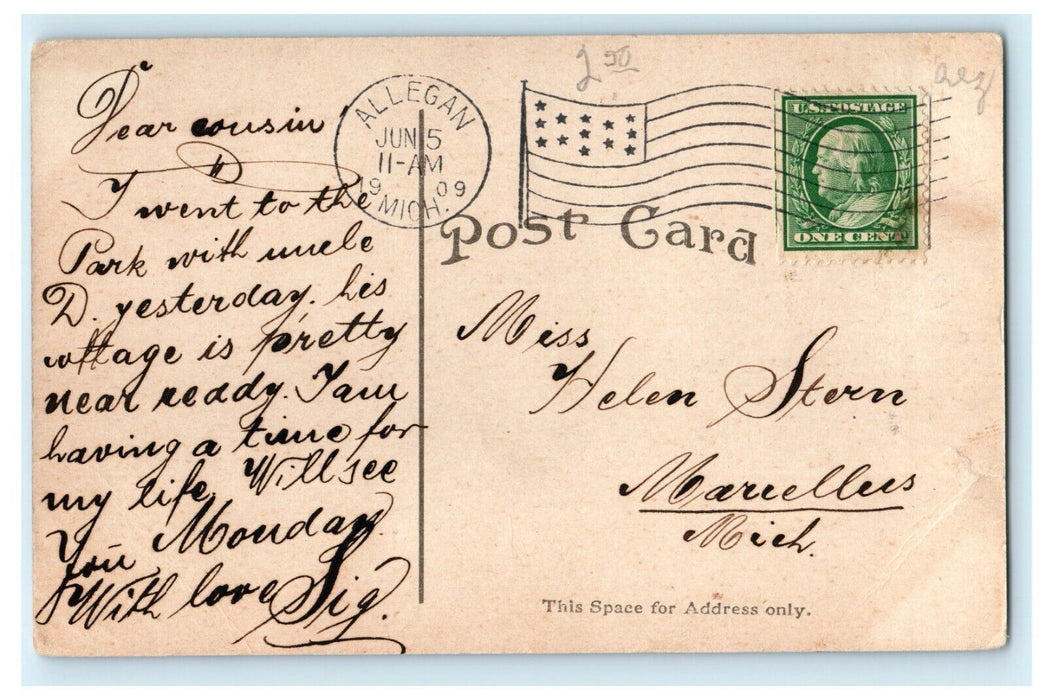 Dear cousin
I went to the
Park with uncle
D. yesterday. his
cottage is pretty
near reddy. I am
having a time for
my life. Will see
you Monday.
With love Sig.
ALLEGAN
JUN 5
11-AM
1909
MICH.
2 50
U.S. POSTAGE
ONE CENT
Post Card
Miss
Helen Stern
Marcellus
Mich.
This Space for Address only.